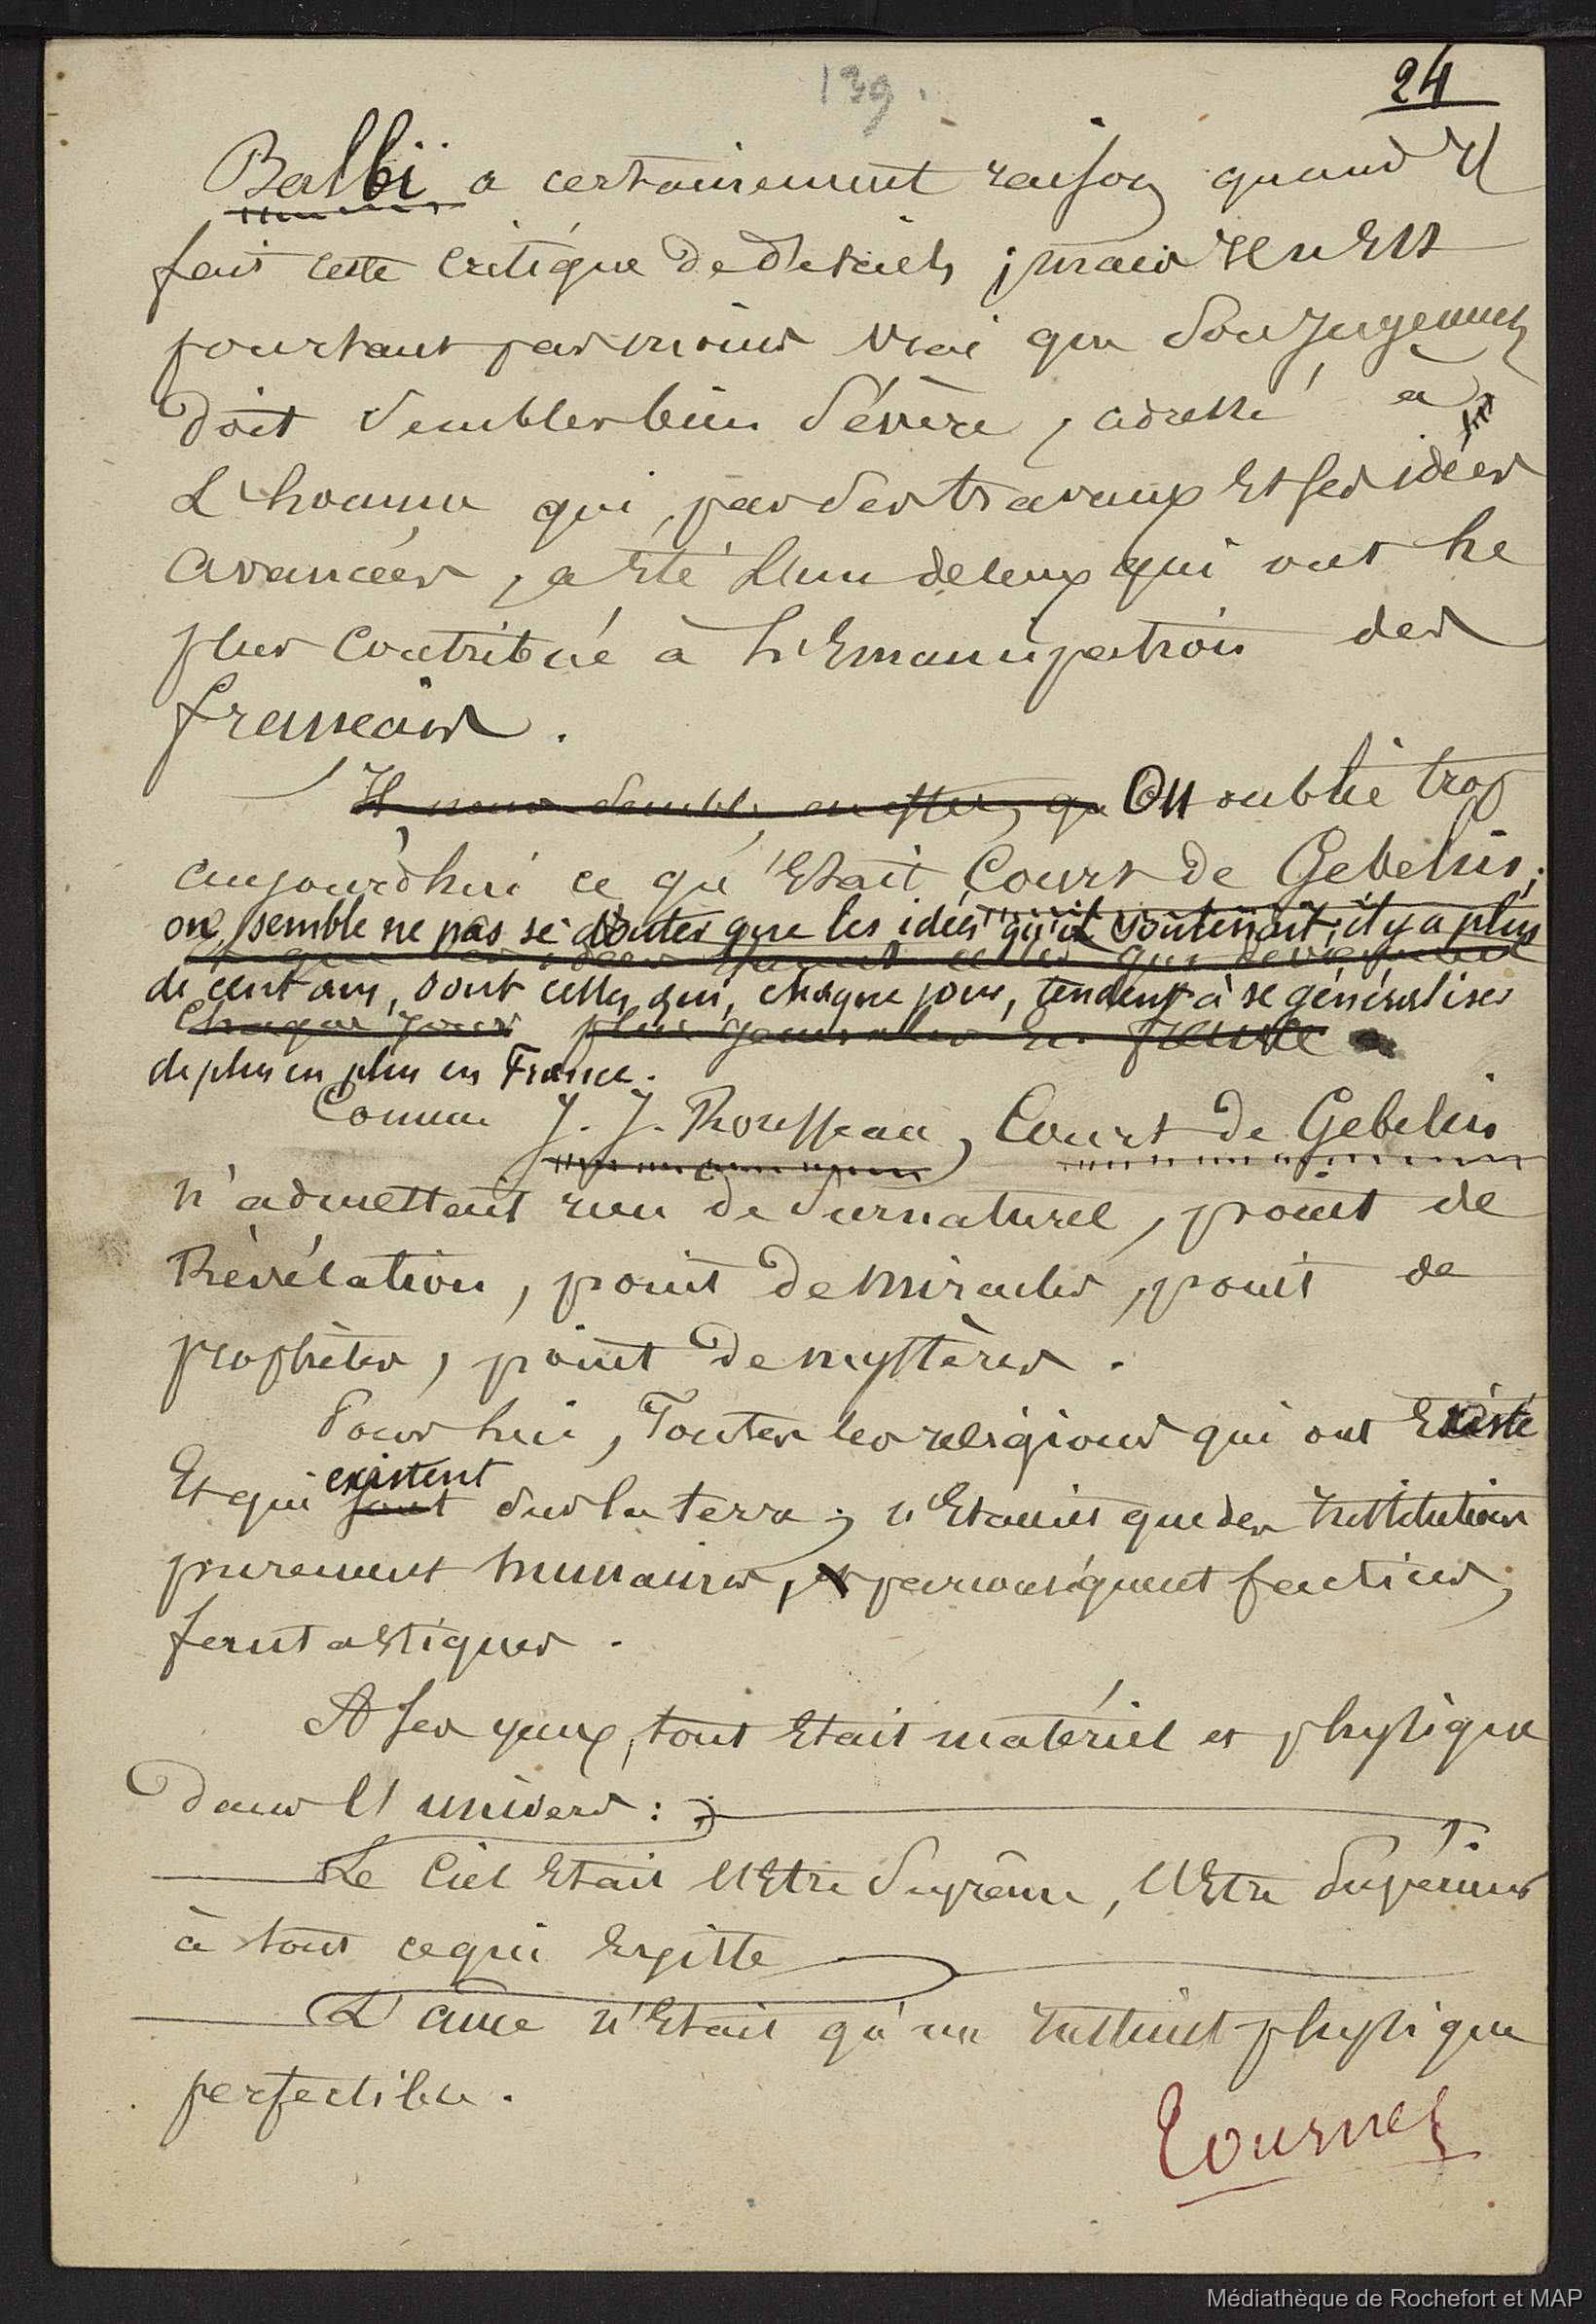 139.
24
Balbi a certainement raison quand Il
fait cette critique de détails ; mais Il n'Est
pourtant pas moins vrai que Son Jugement
doit Sembler bien Sévère, adressé à
L'homme qui, par Ses travaux Et ses idées
avancées, a Eté L'un de ceux qui ont Le
plus Contribué à L'Emancipation des
français.
Il nous Semble, en effet, que On oublie trop
aujourd'hui ce qu'Etait Court de Gebelin ;
on semble ne pas se douter que les idées qu'il soutenait, il y a plus
de cent ans, sont celles qui, chaque jour, tendent à se généraliser
chaque jour plus générales En france
de plus en plus en France.
Comme J. J. Rousseau, Court de Gebelin
n'admettait rien de Surnaturel, point de
Révélation, point de Miracles, point de
prophètes, point de mystères.
Pour lui, Toutes les religions qui ont Existé
Et qui sont existent Sur la terre, n'Etaient que des Institutions
purement humaines, et par conséquent factices,
fantastiques.
A Ses yeux, tout Etait matériel et physique
dans l'univers :
Le Ciel Etait l'Etre Suprême, l'Etre Supérieur
à tout ce qui Existe
L'âme n'Etait qu'un Instinct physique
perfectible.
Tournez
Médiathèque de Rochefort et MAP